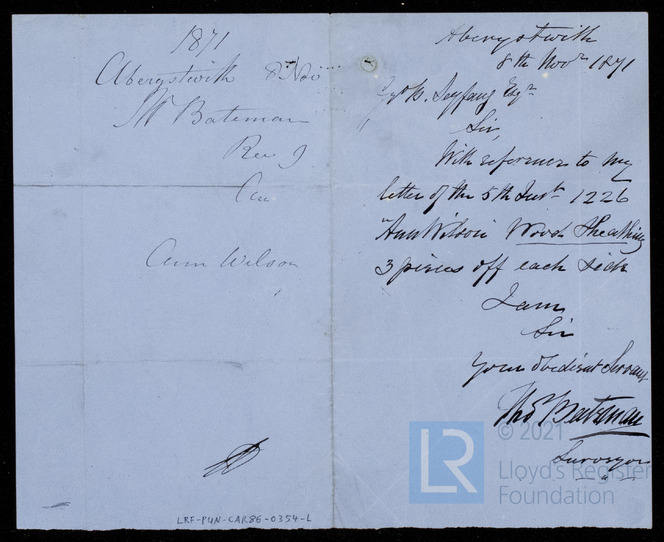 1871
Aberystwith 8 Nov
Mr Bateman
Rec 9
Ann Wilson
LRF-PUN-CAR86-0354-L
Aberystwith
8th Novr 1871
Seyfang Esqre
Sir,
With reference to my
letter of the 5th Inst 1226
"Ann Wilson Wood Sheathing
3 pieces off each side
I am
Sir
Your obedient Servant
Thos Bateman
Surveyor
LR
© 2021
Lloyd's Register
Foundation